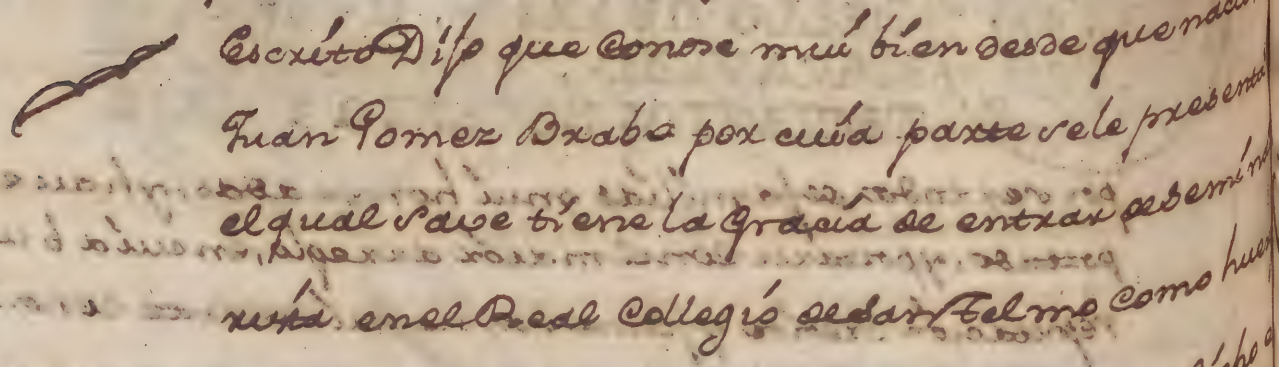 Escrito Dijo que Conose mui bien desde que nacio
Juan Gomez Brabo por cuia parte se le presenta
el qual save tiene la Gracia de entrar de Semina
rista en el Real Collegio de San Telmo Como huer